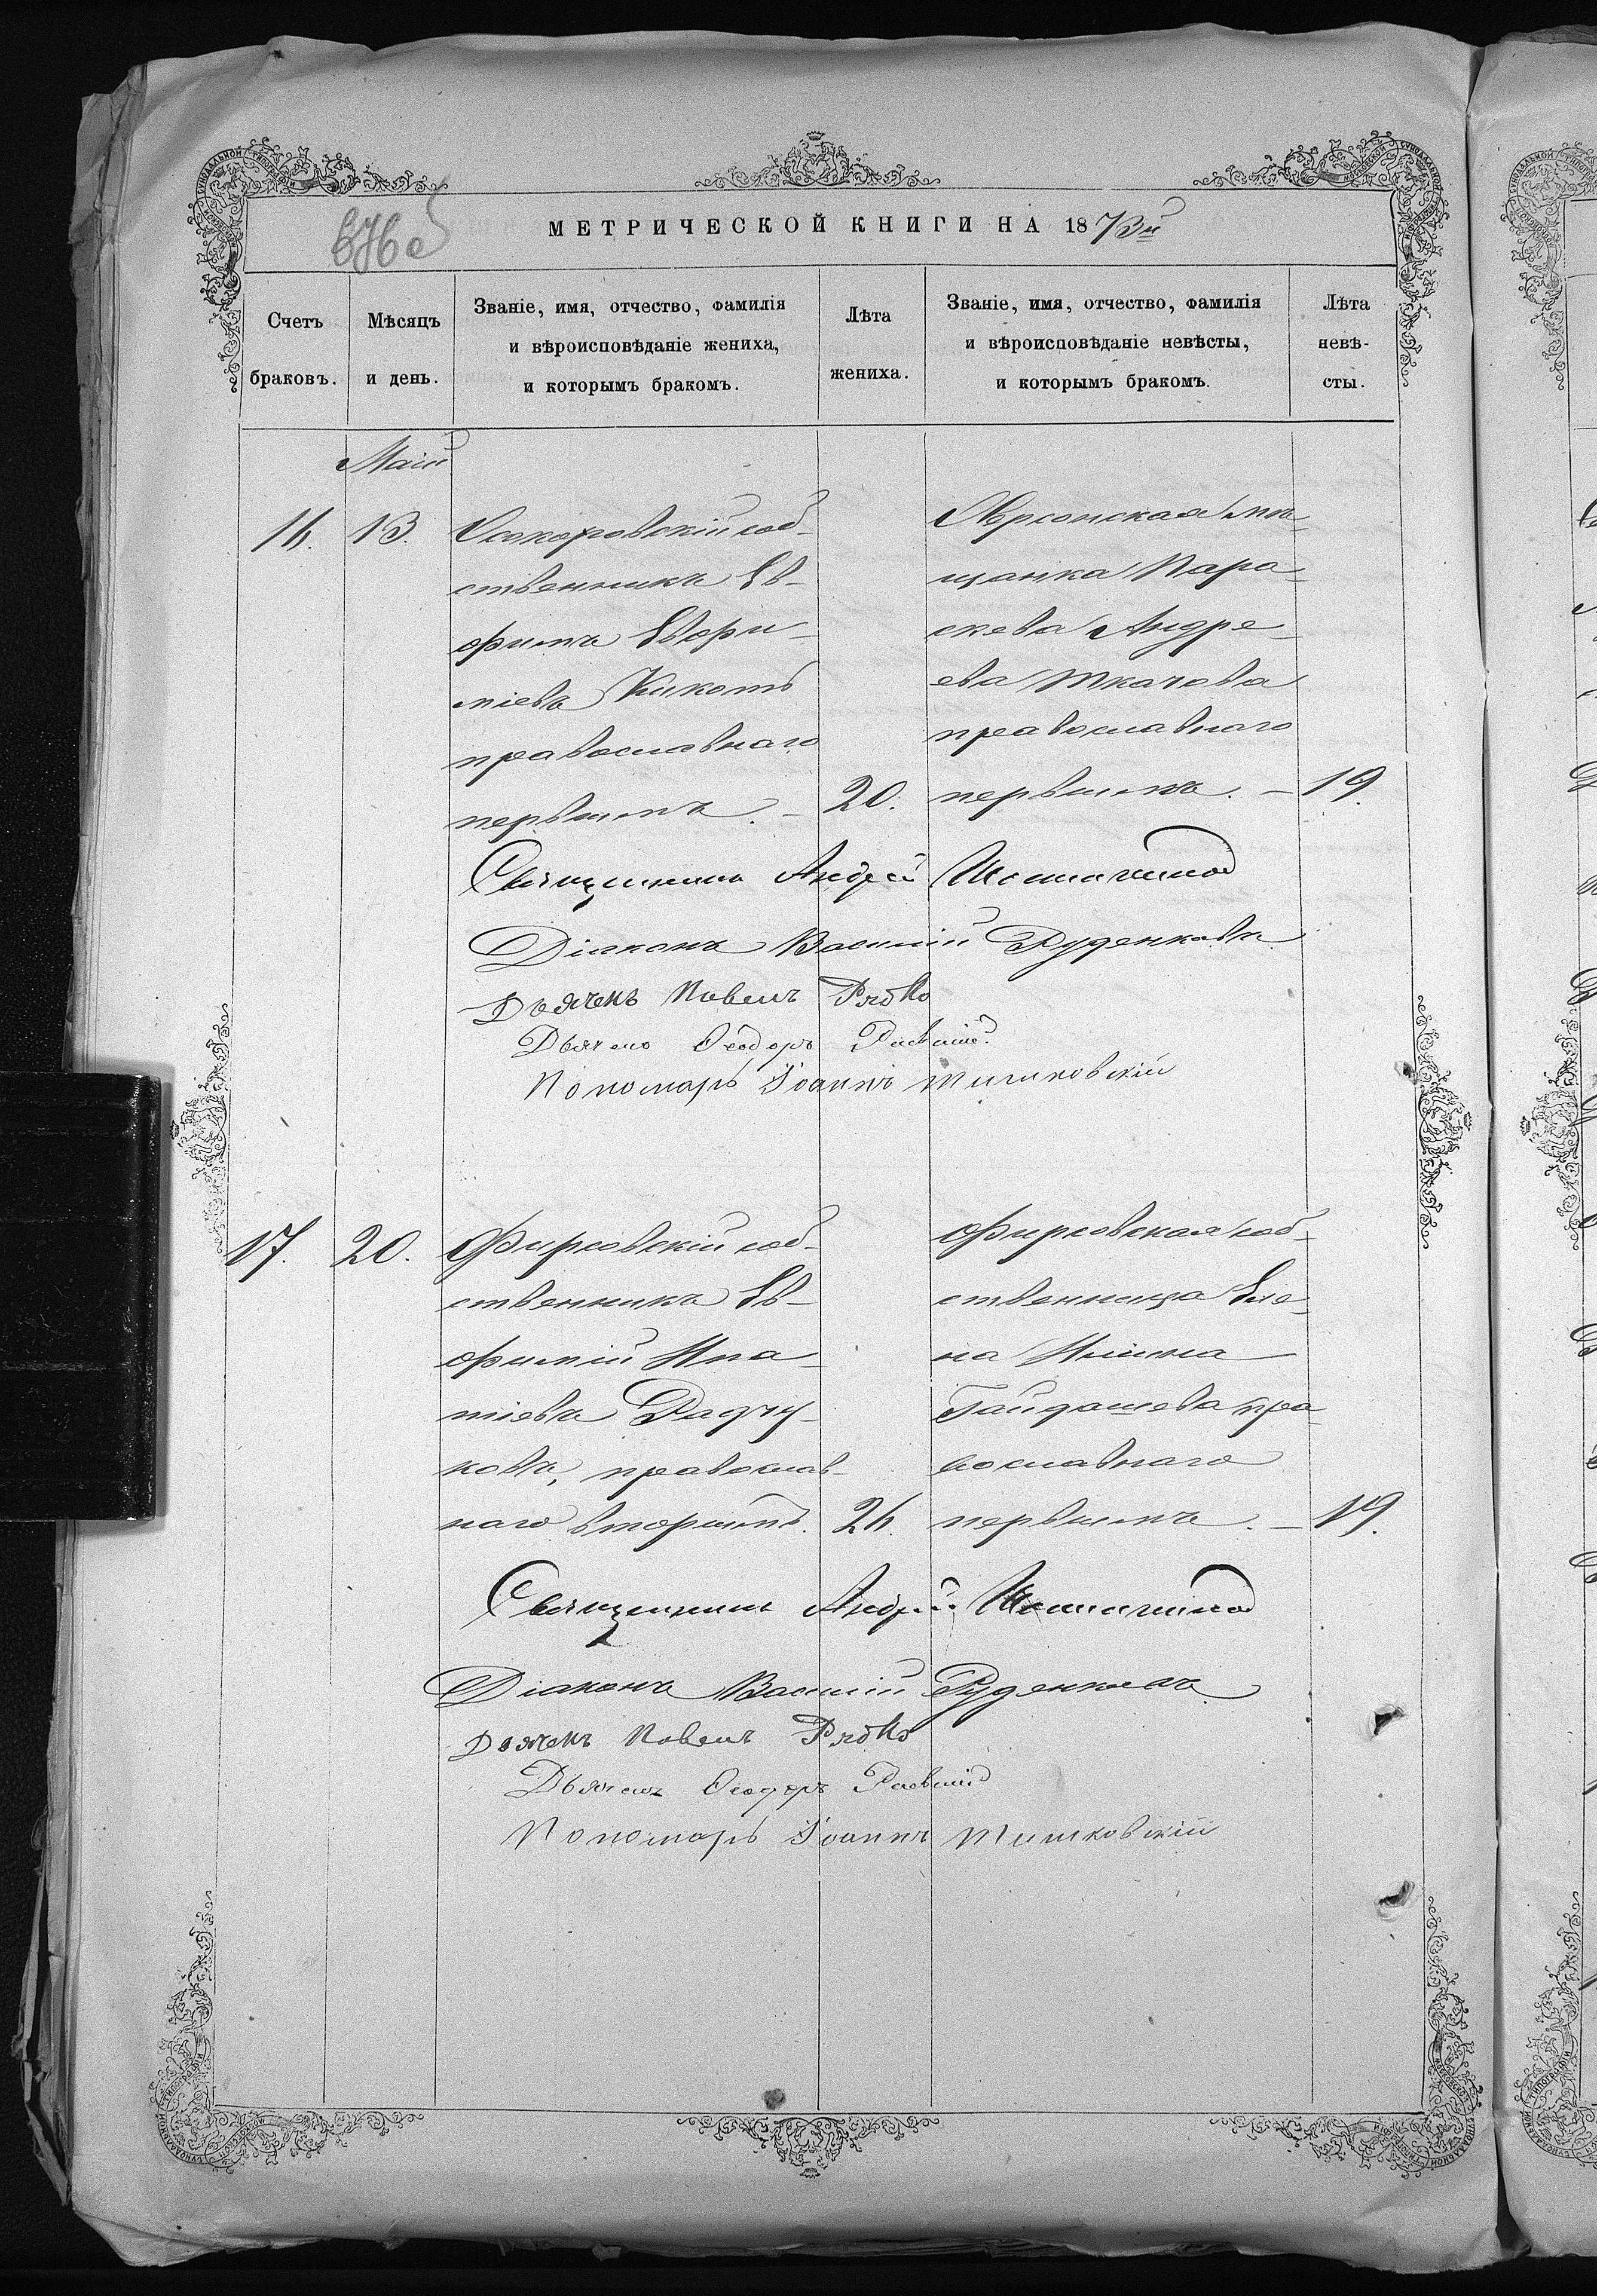 МЕТРИЧЕСКОЙ КНИГИ НА 1873й
Счетъ браковъ.
Мѣсяцъ и день.
Званіе, имя, отчество, фамилія
и вѣроисповѣданіе жениха,
и которымъ бракомъ.
Лѣта жениха.
Званіе, имя, отчество, фамилія
и вѣроисповѣданіе невѣсты,
и которымъ бракомъ.
Лѣта невѣ-
сты.
Май
16. 13.
соб-
ственникъ Ев-
фимъ Евфи-
міевъ Кикоть
православнаго
первымъ. - 20.
Херсонская мѣ-
щанка Пара-
скева Андре-
ева Ткачова
православнаго
первымъ. - 19.
Священникъ Андрей
Діаконъ Василій Руденковъ
Дьячекъ Павелъ Рябко
Дьячекъ Ѳеодоръ Раевскій
Пономарь Іоаннъ Тишковскій
17. 20.
Фирсовскій соб-
ственникъ Ев-
фимій Ипа-
тіевъ Радчу-
ковъ, православ-
наго вторымъ. 26.
Фирсовская соб-
ственница Еле-
на Ильина
Гайдашева пра-
вославнаго
первымъ. - 19.
Священникъ Андрей
Діаконъ Василій Руденковъ
Дьячекъ Павелъ Рябко
Дьячекъ Ѳеодоръ Раевскій
Пономарь Іоаннъ Тишковскій